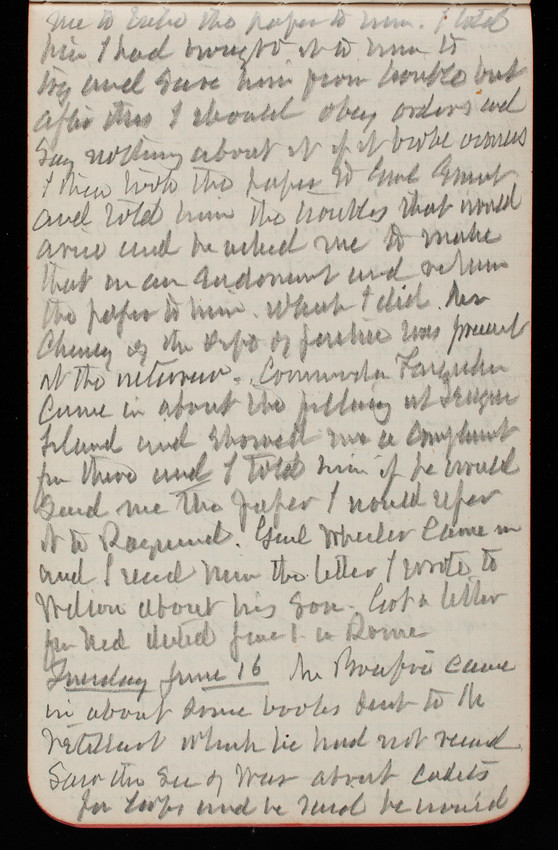 me to write the paper to him. I told
him I had brought it to him to
try and save him from trouble but
after this I should obey orders and
say nothing about it if it broke
I then took the paper to Genl Grant
and told him the troubles that would
arise and he asked me to make
that in an endorsement and return
the paper to him. Which I did. Mr
Cheney of the Dept of Justice was present
at the interview. Commodore Farquhar
came in about the filling at League
Island and showed me a complaint
from there and I told him if he would
send me the paper I would refer
it to Raymond. Genl Wheeler came in
and I read him the letter I wrote to
Wilson about his son. Got a letter
from Ned dated June 1 in Rome
Tuesday June 16 Mr came
in about some books sent to the
which he had not read.
Saw the Sec of War about cadets
for and he said he would